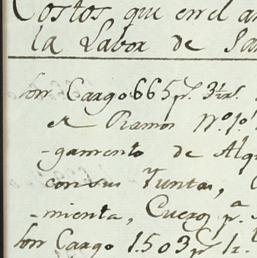 Costos, que en el a
la Labor de Sa
son Cargo 665 p.s 3½ r.s
el Ramo N.o 1.o
-gamento de Alq
con sus Juntas,
-mienta, Cueros p.a
son Cargo 1.503 p.s ½